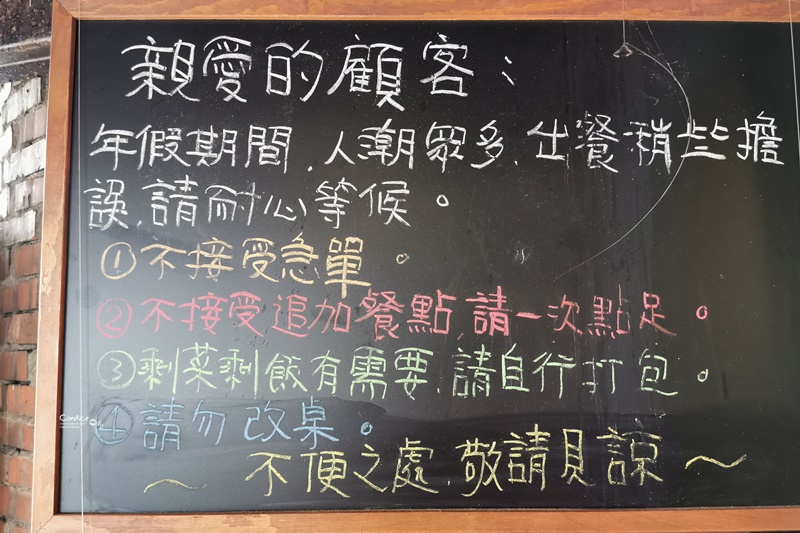 親愛的顧客：
年假期間，人潮眾多，出餐稍些擔
誤，請耐心等候。
①不接受急單。
②不接受追加餐點，請一次點足。
③剩菜剩飯有需要，請自行打包。
④請勿改桌。
～不便之處，敬請見諒～